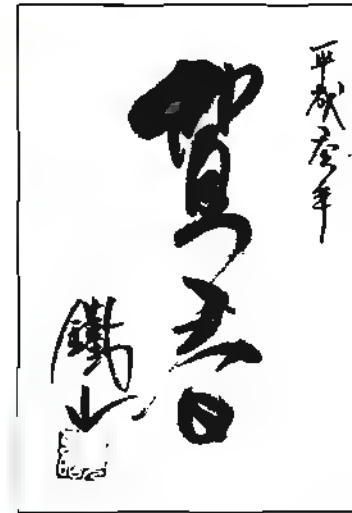 平成 年
賀春
鐵山